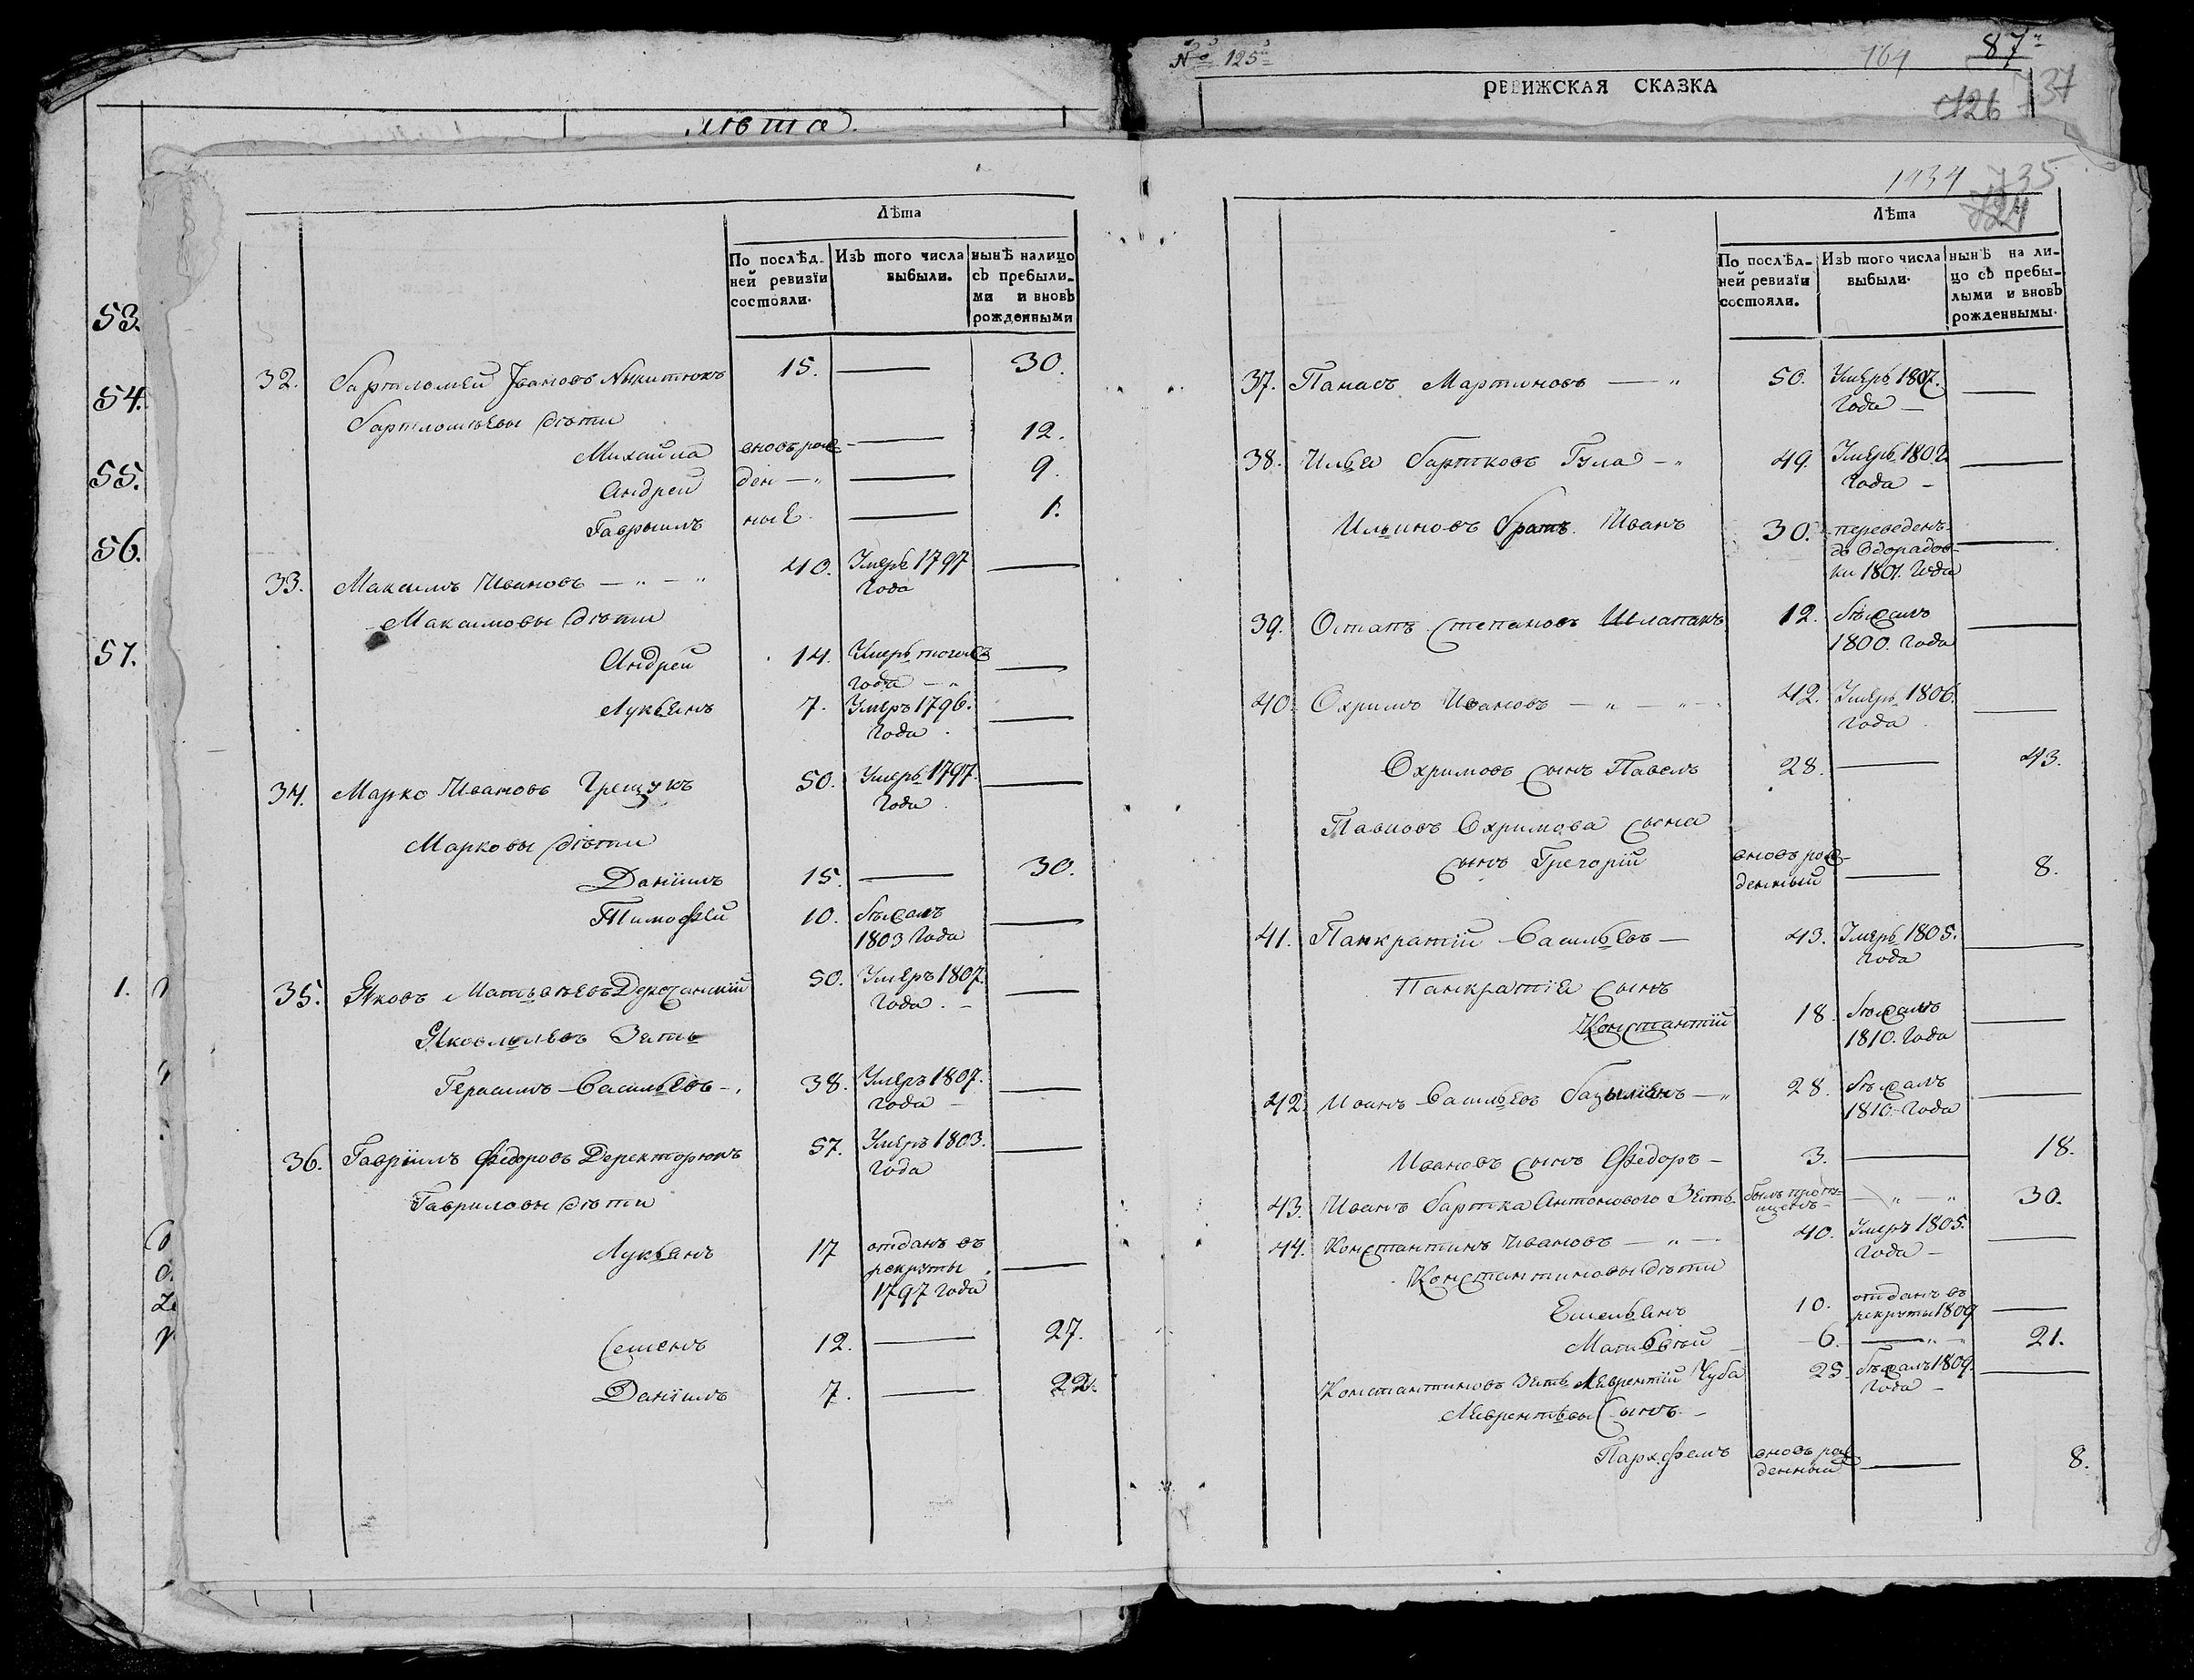 № 125
164
87
РЕВИЖСКАЯ СКАЗКА
126
737
лѣта
53.
54.
55.
56.
57.
1.
Лѣта
По послѣд-
ней ревизїи
состояли.
Изъ того числа
выбыли.
нынѣ налицо
съ пребыли-
ми и вновь
рожденными
32. Бартломей Івановъ Никитюкъ 15. — 30.
Бартломѣевы дѣти
Михайла вновь рож- — 12.
Андрей ден — 9.
Гаврыилъ ные — 1.
33. Максимъ Ивановъ — 40. Умеръ 1797 —
Года
Максимовы дѣти
Андрей 14. Умеръ тогожъ —
года
Лукьянъ 7. Умеръ 1796. —
Года
34. Марко Ивановъ Грещукъ 50. Умеръ 1797. —
Года
Марковы дѣти
Данїилъ 15. — 30.
Тимофей 10. бѣжалъ —
1803 Года
35. Яковъ 50. Умеръ 1807. —
Года
Яковлывъ Зять
Герасимъ Васильевъ 38. Умеръ 1807. —
года
36. Гаврїилъ Федоровъ Деректорюкъ 57. Умеръ 1803. —
Года
Гавриловы дѣти
Лукьянъ 17 отданъ въ —
рекруты
1797 года
Семенъ 12. — 27.
Данїилъ 7. — 22.
1434 735
724
Лѣта
По послѣд-
ней ревизїи
состояли.
Изъ того числа
выбыли.
нынѣ на ли-
цо съ пребы-
лыми и вновь
рожденнымы.
37. Панасъ Мартиновъ — 50. Умеръ 1807. —
Года
38. Илья Бартковъ Гула 49. Умеръ 1802 —
Года
Ильиновъ братъ Иванъ 30. переведенъ —
до
ки 1801. Года
39. Остапъ Степановъ Шлапакъ 12. бѣжалъ —
1800. Года
40. Охримъ Ивановъ — 42. Умеръ 1806. —
Года
Охримовъ сынъ Павелъ 28. — 43.
Павловъ Охримова сына
сынъ Григорій вновь рож- — 8.
денный
41. Панкратїй Васильевъ — 43. Умеръ 1805. —
Года
Панкратїя сынъ
Константїй 18. бѣжалъ —
1810. Года
42. Иванъ Васильевъ 28. бѣжалъ —
1810. Года
Ивановъ сынъ Федоръ — 3. — 18.
43. Иванъ Бартка Антонового Зять былъ пропи- — 30.
щенъ
44. Константинъ Ивановъ — 40. Умеръ 1805. —
Года
Константиновы дѣти
Емельянъ 10. отданъ въ —
рекруты 1809
Матвѣй 6. — 21.
Константиновъ Зять Лаврентїй Чуба 25. бѣжалъ 1809. —
Года
Лаврентьевы Сынъ
Парх.фемъ вновь рож- — 8.
денный